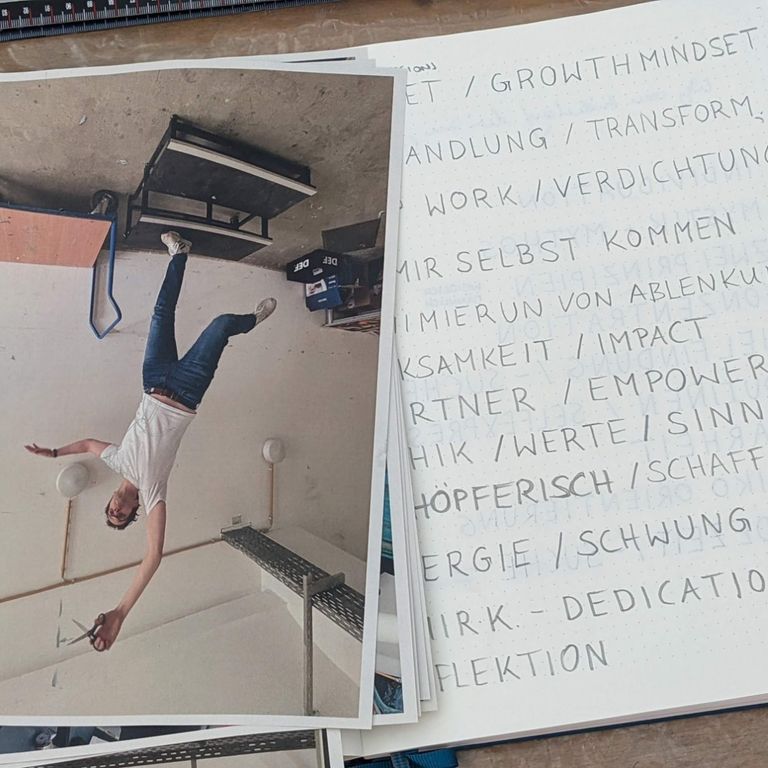 ET / GROWTHMINDSET
ANDLUNG / TRANSFORM.
WORK / VERDICHTUNG
MIR SELBST KOMMEN
IMIERUN VON ABLENKU
KSAMKEIT / IMPACT
RTNER / EMPOWER
HIK / WERTE / SINN
HÖPFERISCH / SCHAFF
ERGIE / SCHWUNG
IRK. - DEDICATIO
FLEKTION
DEF
DEF